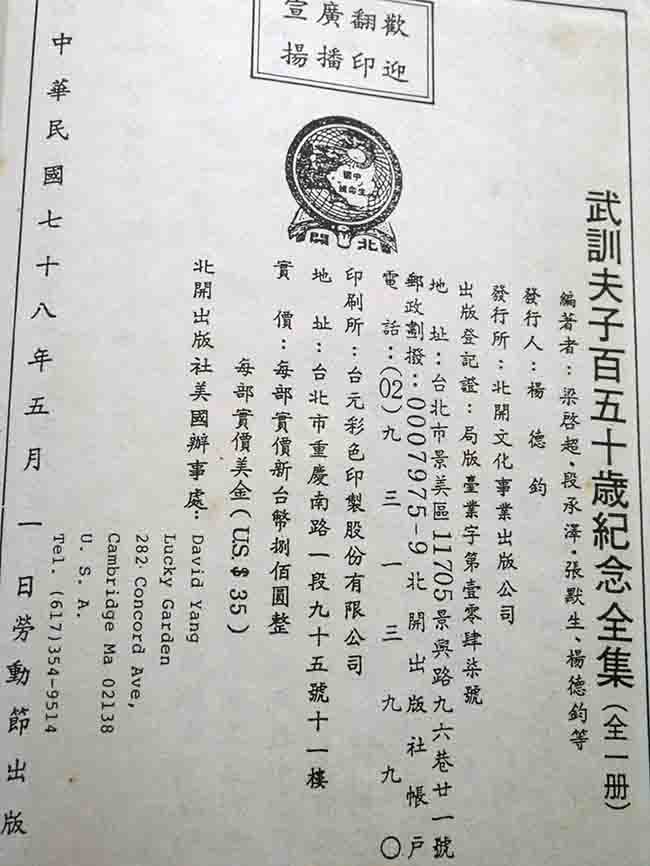 歡迎
翻印
廣播
宣揚
中國
生命線
北開
武訓夫子百五十歲紀念全集(全一册)
編著者:梁啓超、段承澤・張默生、楊德鈞等
發行人:楊德鈞
發行所:北開文化事業出版公司
出版登記證:局版臺業字第壹零肆柒號
地址:台北市景美區11705景興路九六巷廿一號
郵政劃撥:0007975-9北開出版社帳戶
電話:(02)九三一三九九〇
印刷所:台元彩色印製股份有限公司
地址:台北市重慶南路一段九十五號十一樓
實價:每部實價新台幣捌佰圓整
每部實價美金(US.$35)
北開出版社美國辦事處:David Yang
Lucky Garden
282 Concord Ave,
Cambridge Ma 02138
U. S. A.
Tel. (617)354-9514
中華民國七十八年五月一日勞動節出版